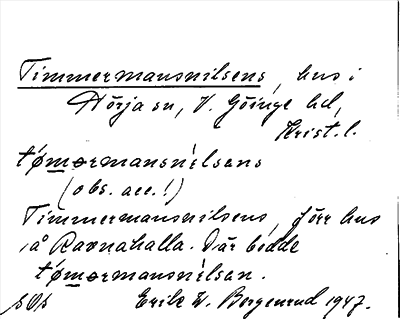 Timmermansnilsens, hus i
Hörja sn, V. Göinge hd,
Krist. l.
tømərmansnìlsəns
(obs. acc.!)
Timmermansnilsens, förr hus
på Ravnahalla. Där bodde
tømərmansnìlsən.
Erik W. Borgenrud 1947.